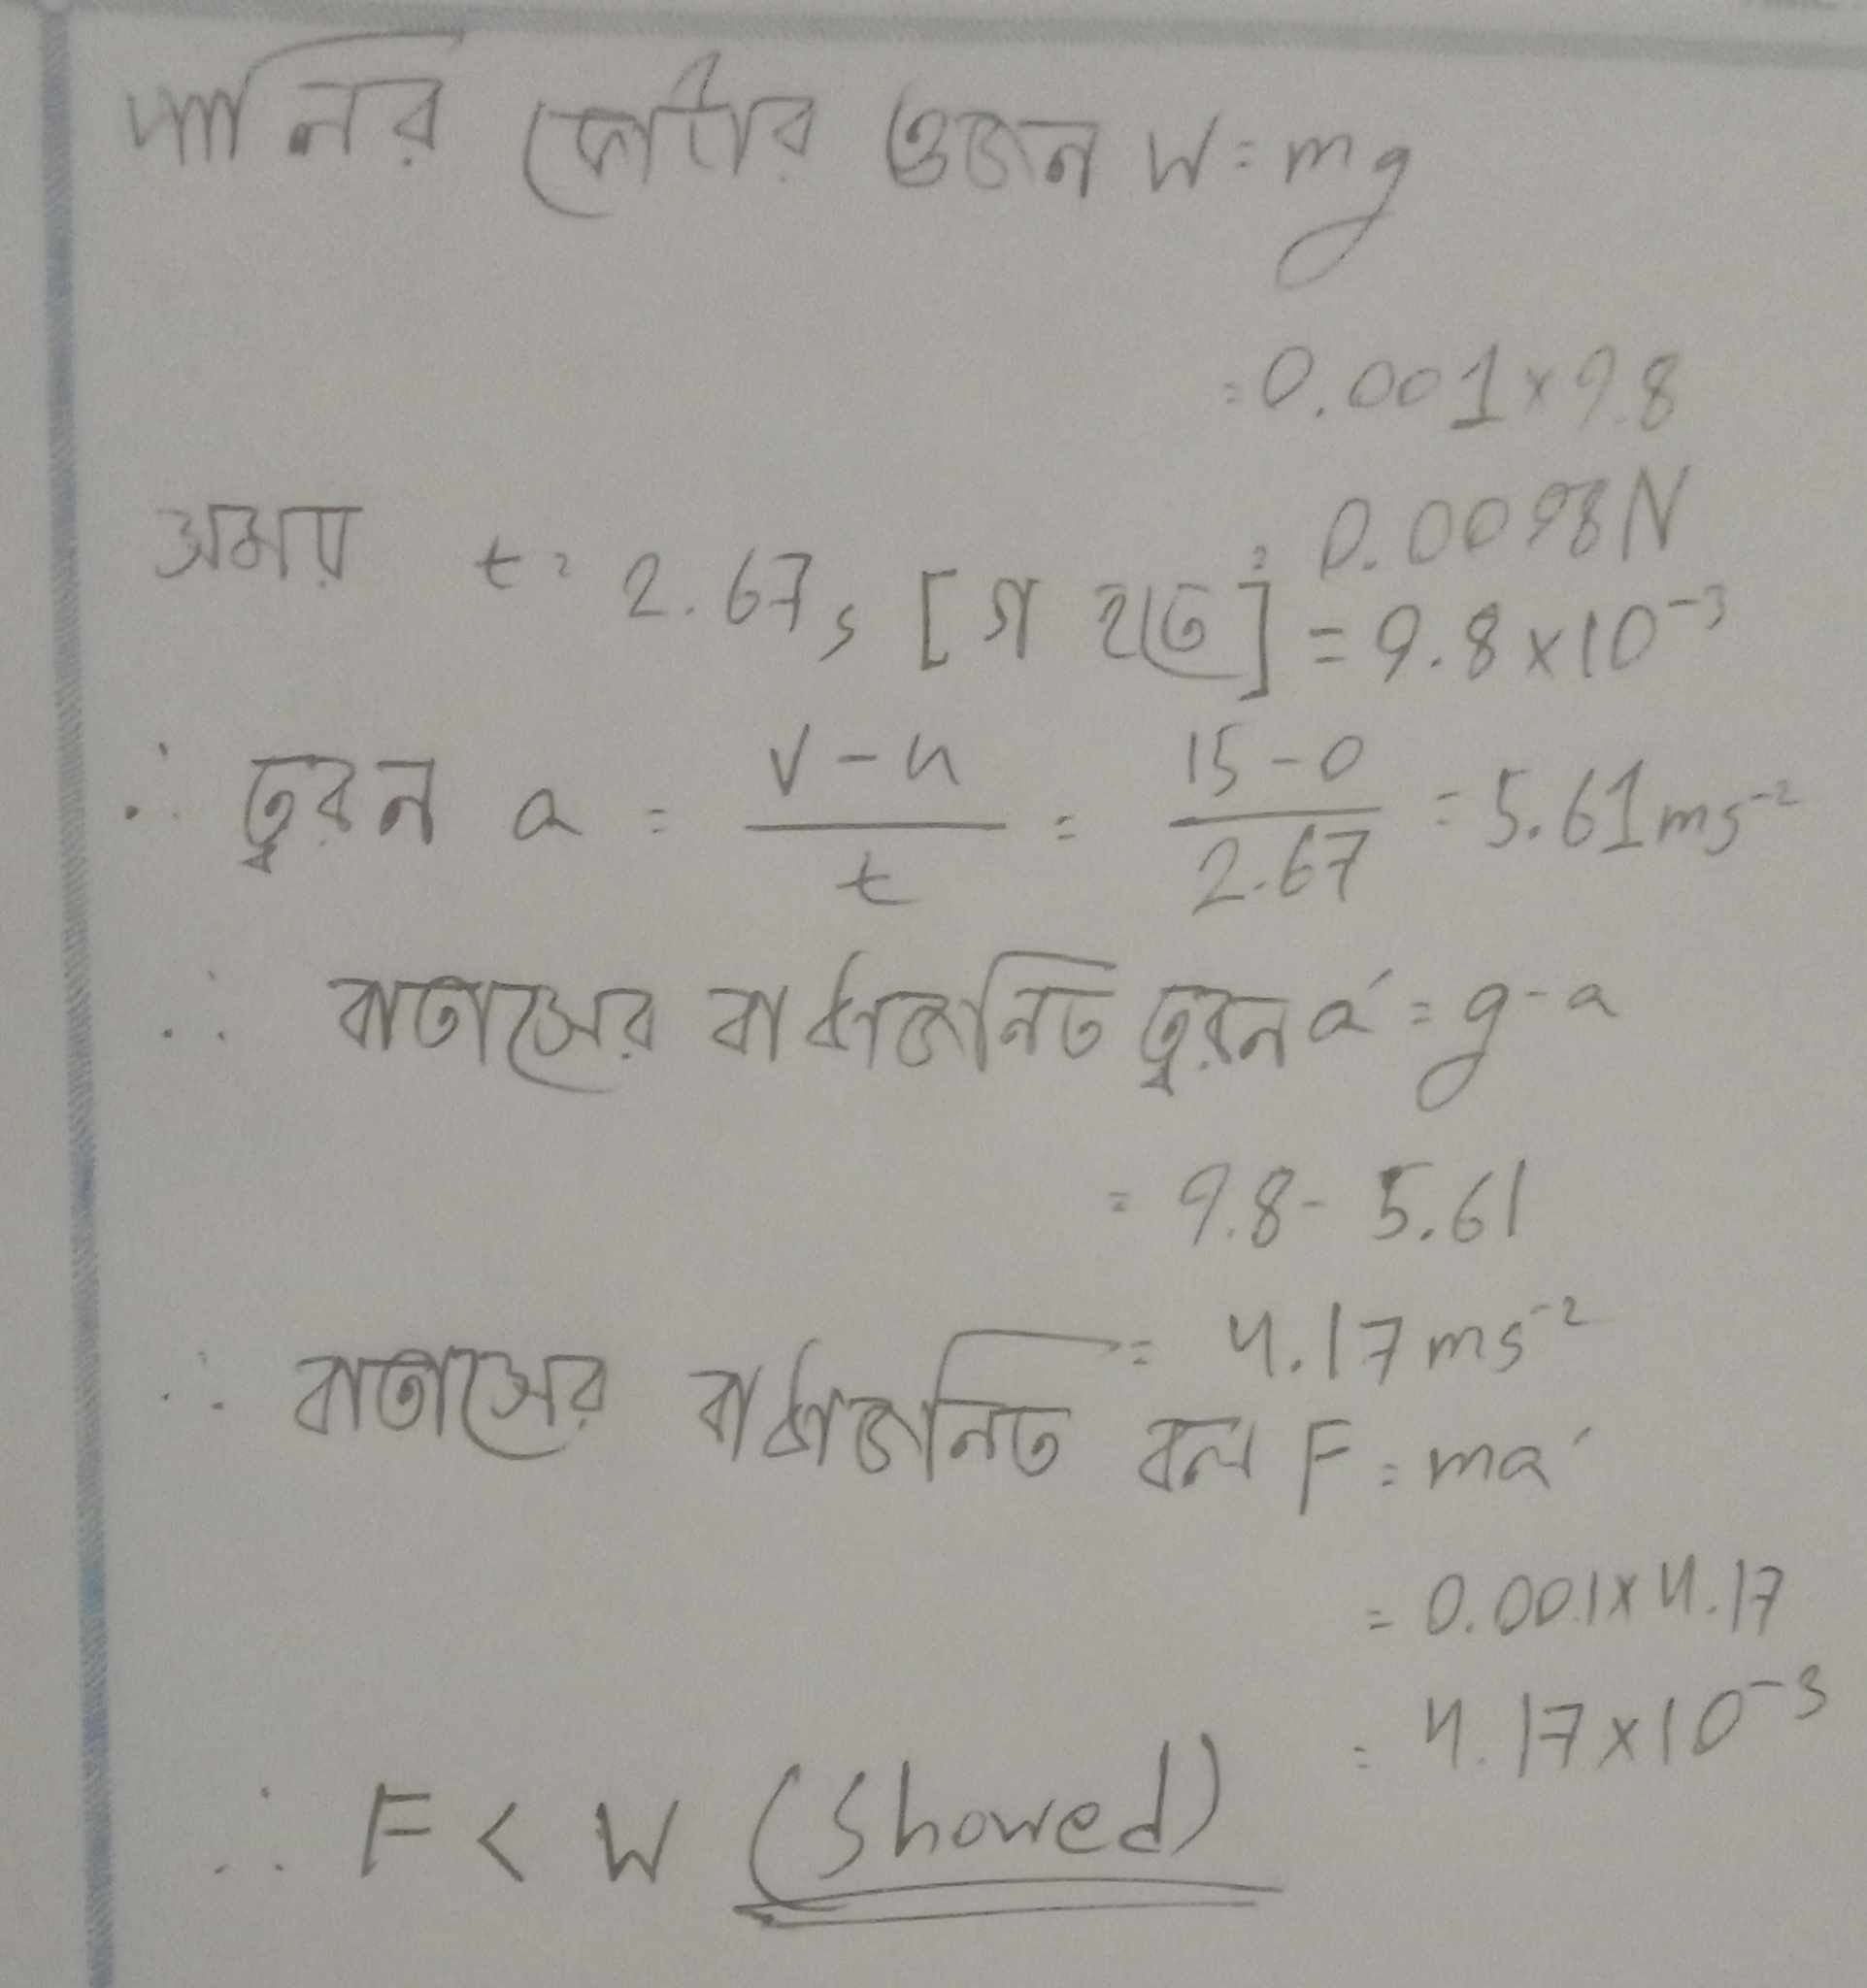 পানির ফোঁটার ওজন W = mg
= 0.001 × 9.8
= 0.0098 N
সময় t = 2.67 s [গ হতে] = 9.8 × 10⁻³
∴ ত্বরন a = (v - u)/t = (15 - 0)/2.67 = 5.61 ms⁻²
∴ বাতাসের বাধাজনিত ত্বরন a′ = g - a
= 9.8 - 5.61
= 4.17 ms⁻²
∴ বাতাসের বাধাজনিত বল F = ma′
= 0.001 × 4.17
= 4.17 × 10⁻³
∴ F < W (Showed)